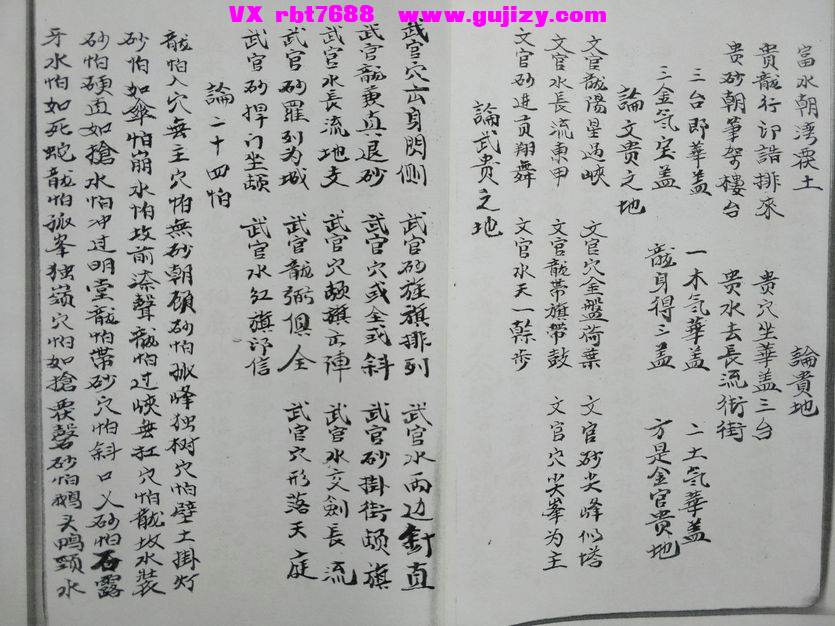 VX rbt7688 www.gujizy.com
富水朝湾裹土
論貴地
贵龍行印誥排來 贵穴坐華盖三台
贵砂朝筆架樓台 贵水去長流街街
三台即華盖 一木气華盖 二土气華盖
三金气宝盖 龍身得三盖 方是金官贵地
論文贵之地
文官龍陽星過峽 文官穴金盤荷葉 文官砂尖峰似塔
文官水長流東甲 文官龍帶旗帶鼓 文官穴尖峯为主
文官砂进贡翔舞 文官水天一禄步
論武贵之地
武官穴出身閃側 武官砂旌旗排列 武官水两边針直
武官龍兼真退砂 武官穴或全或斜 武官砂掛街颉旗
武官水長流地支 武官穴颉旗正陣 武官水交劍長流
武官砂羅列为城 武官龍弼俱全 武官穴形落天庭
武官砂捍门坐颉 武官水红旗印信
論二十四怕
龍怕入穴無主穴怕無砂朝顧砂怕孤峰独树穴怕壁土掛灯
砂怕如傘怕崩水怕坟前漆聲龍怕过峽無扛穴怕龍坟水裝
砂怕硬直如搶水怕冲过明堂龍怕帶砂穴怕斜口乂砂怕石露
牙水怕如死蛇龍怕孤峯独嶺穴怕如搶裹磬砂怕鵝头鴨頸水